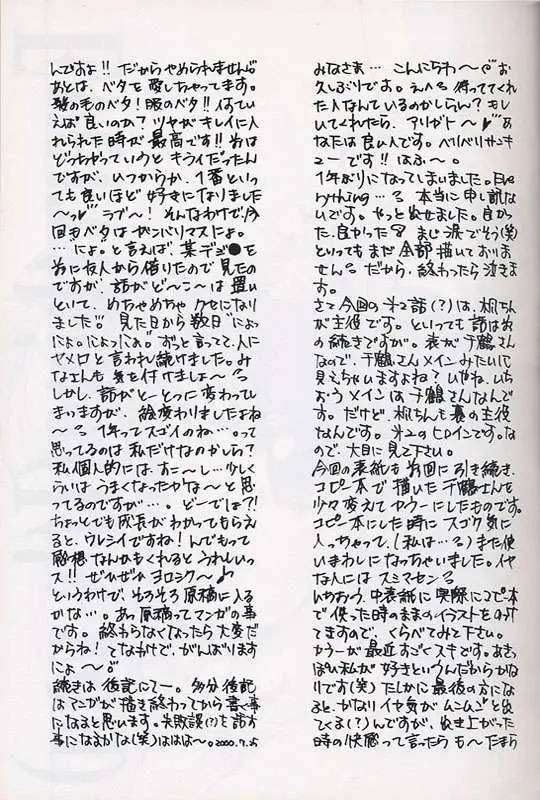 みなさま… こんにちわ～♡お
久しぶりです。え？待っててくれ
た人なんているのかしらん？もし
いてくれたら、アリガト～♡あ
なたは良い人です。ベリベリサンキ
ューです!!はふ～。
1年ぶりになってしまいました。Eve
rything…る 本当に申し訳な
いです。やっと出せました。良かっ
た、良かったる まじ涙でそう(笑)
といってもまだ全部描いておりま
せんる だから、終わったら泣きま
す。
さて今回の第2話(？)は、梓ちん
が主役です。といっても話は前
の続きですが。表が千鶴さん
なので、千鶴さんメインみたいに
見えちゃいますよね？いやね、いち
おうメインは千鶴さんなんで
す。だけど、梓ちんも裏の主役
なんです。第2のヒロインです。な
ので、大目に見て下さい。
今回の表紙も前回に引き続き、
コピー本で描いた千鶴さんを
少々変えてカラーにしたものです。
コピー本にした時にスゴク気に
入っちゃって、(私は…る)また使
いまわしになっちゃいました。イヤ
な人にはスミマセンる
いちおう、中表紙に実際にコピー本
で使った時のままのイラストをのせ
てますので、くらべてみて下さい。
カラーが最近すごくスキです。あきっ
ぽい私が好きというんだからかな
りです(笑)たしかに最後の方にな
ると、かなりイヤ気がムンムンと出
てくる(？)んですが、出き上がった
時の快感って言ったらも～たまら
んですよ!!だからやめられません。
あとは、ベタを愛しちゃってます。
髪の毛のベタ!服のベタ!!何てい
えば良いのか？ツヤがキレイに入
れられた時が最高です!!前は
どっちかっていうとキライだったん
ですが、いつからか、1番といっ
ても良いほど好きになりました
～っ♡ラブ～!そんなわけで、今
回もベタはガンバリマスにょ。
…"にょ"と言えば、某デジ●を
前に友人から借りたので見たの
ですが、話がど～こ～は置い
といて、めちゃめちゃクセになり
ました!!見た日から数日"にょっ
にょ。にょっにょ。"ずっと言ってて、人に
ヤメロと言われ続けました。み
なさんも気を付けましょ～る
しかし、話がとーとつに変わってし
まっますが、絵変わりましたよね
～る 1年ってスゴイのね…。って
思ってるのは私だけなのかしら？
私個人的には、すこ～し…少しく
らいはうまくなったかな～と思
ってるのですが…。どーでしょ？!
ちょっとでも成長がわかってもらえ
ると、ウレシイですね!んでもって
感想なんかもくれるとうれしいっ
ス!!ぜひぜひヨロシク～♪
というわけで、そろそろ原稿に入る
かな…。あっ原稿ってマンガの事
です。終わらなくなったら大変だ
からね!てなわけで、がんばります
にょ～♪
続きは後記にてー。多分後記
はマンガが描き終わってから書く事
になると思います。失敗談(？)を話す
事になるかな(笑)ははは～。2000.7.25